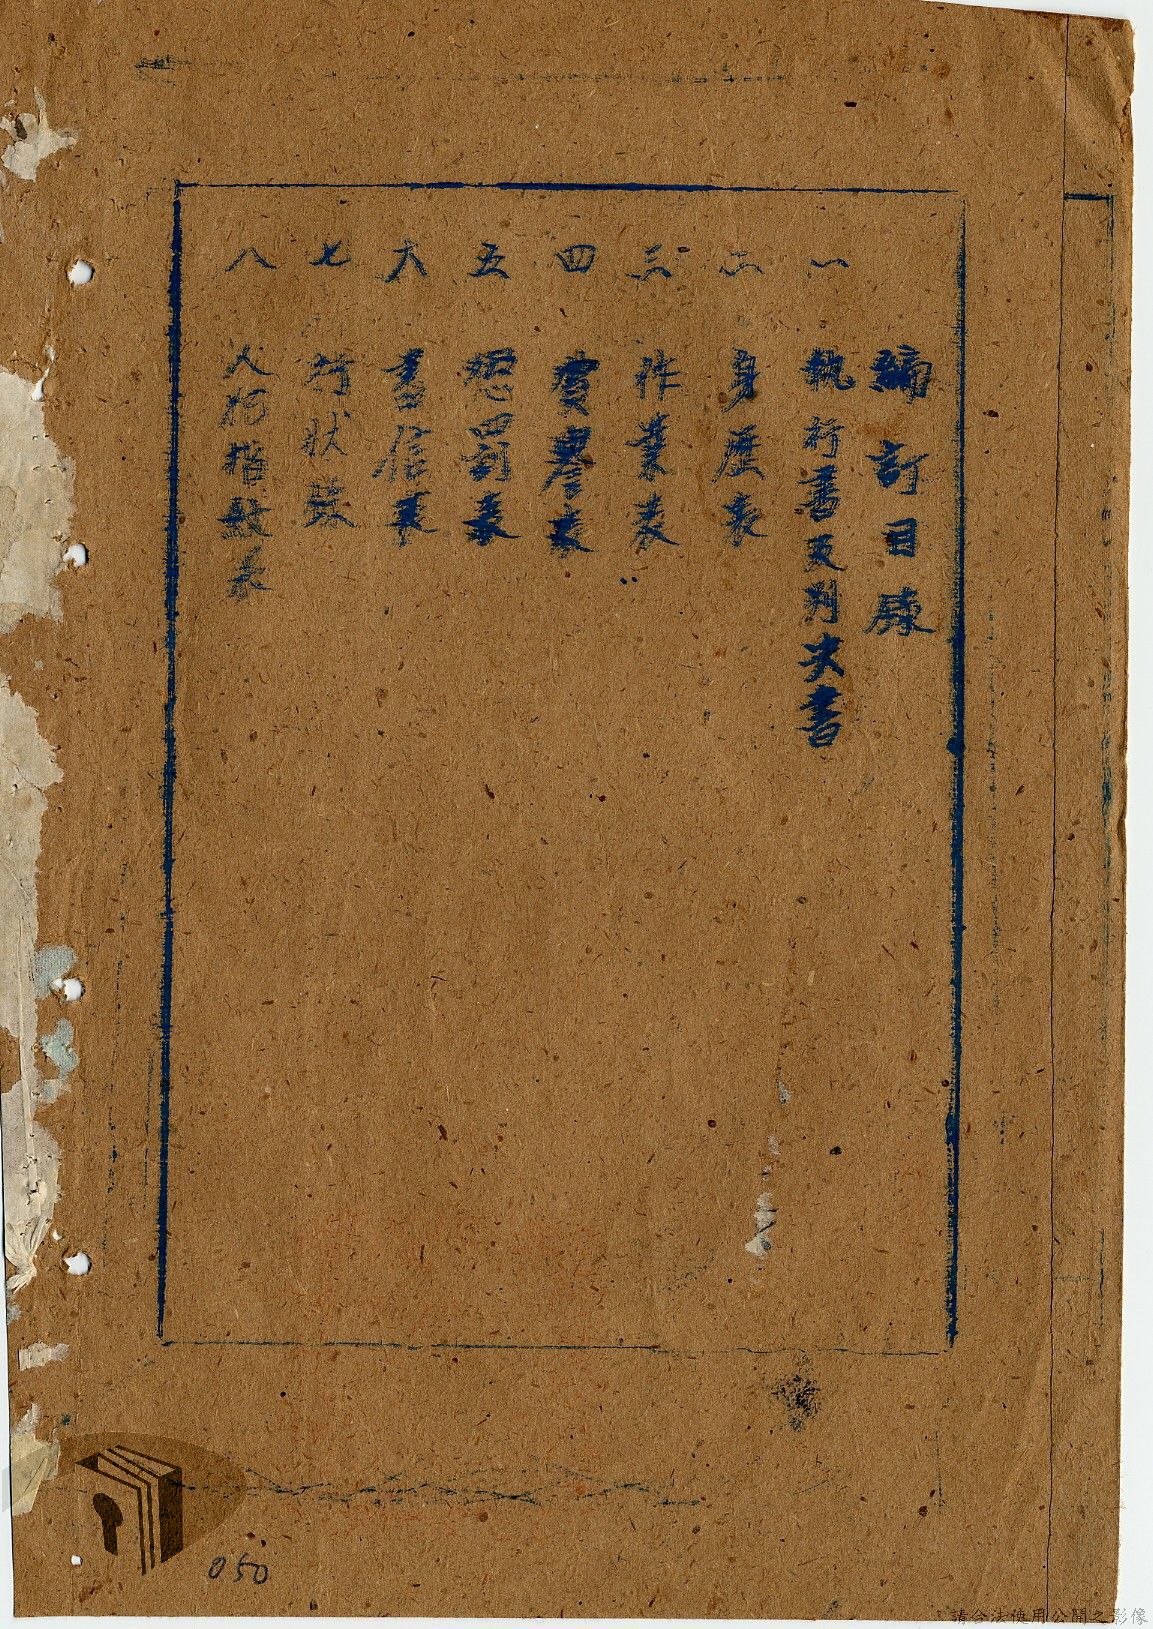 編訂目錄
一 執行書及判決書
二 身歷表
三 作業表
四 賞譽表
五 懲罰表
六 書信表
七 行狀錄
八 人格指數表
050
請合法使用公開之影像